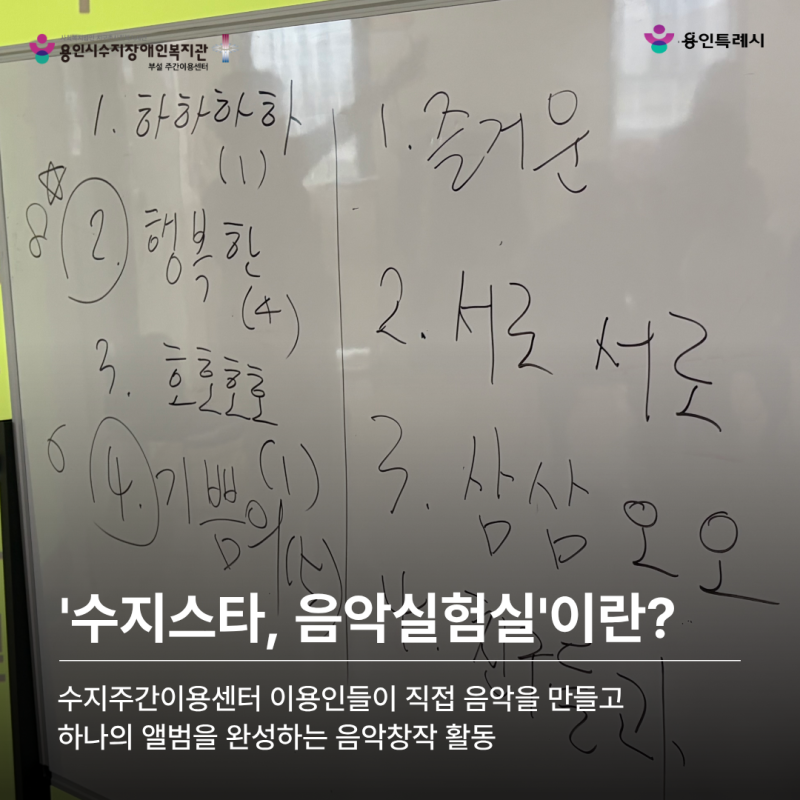 용인시수지장애인복지관
부설 주간이용센터
용인특례시
1. 하하하하
(1)
8☆ 2. 행복한
(4)
3. 호호호호
6 4. 기쁨의 (1)
1. 즐거운
2. 서로 서로
3. 삼삼오오
친구들
'수지스타, 음악실험실'이란?
수지주간이용센터 이용인들이 직접 음악을 만들고
하나의 앨범을 완성하는 음악창작 활동